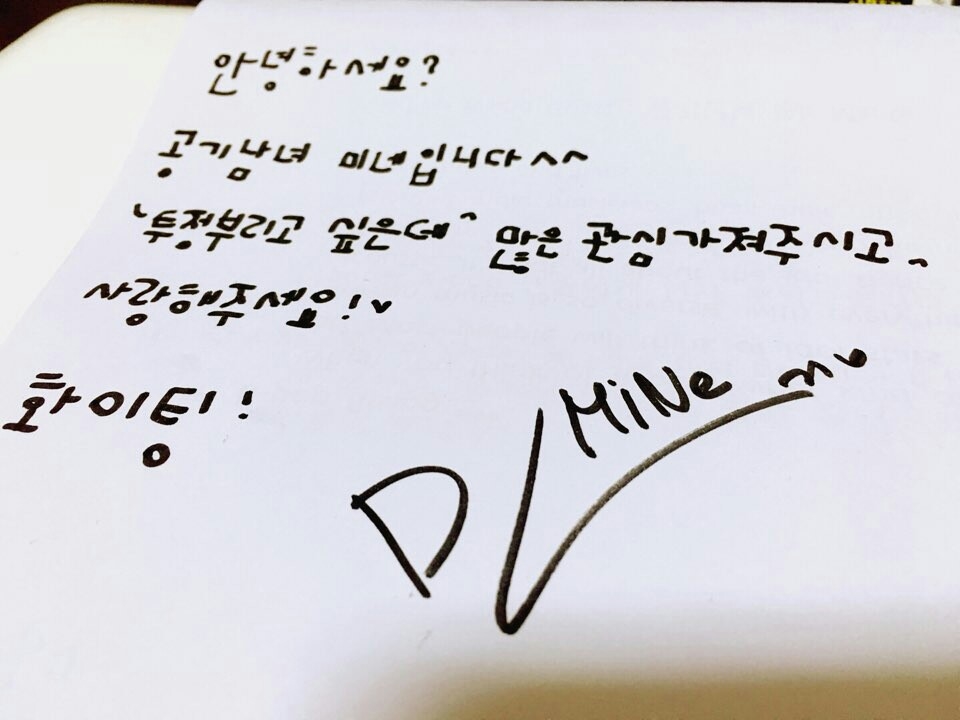 안녕하세요?
공기남녀 미네입니다^^
'투정부리고 싶은데' 많은 관심가져주시고~
사랑해주세요!~
화이팅!
MiNe